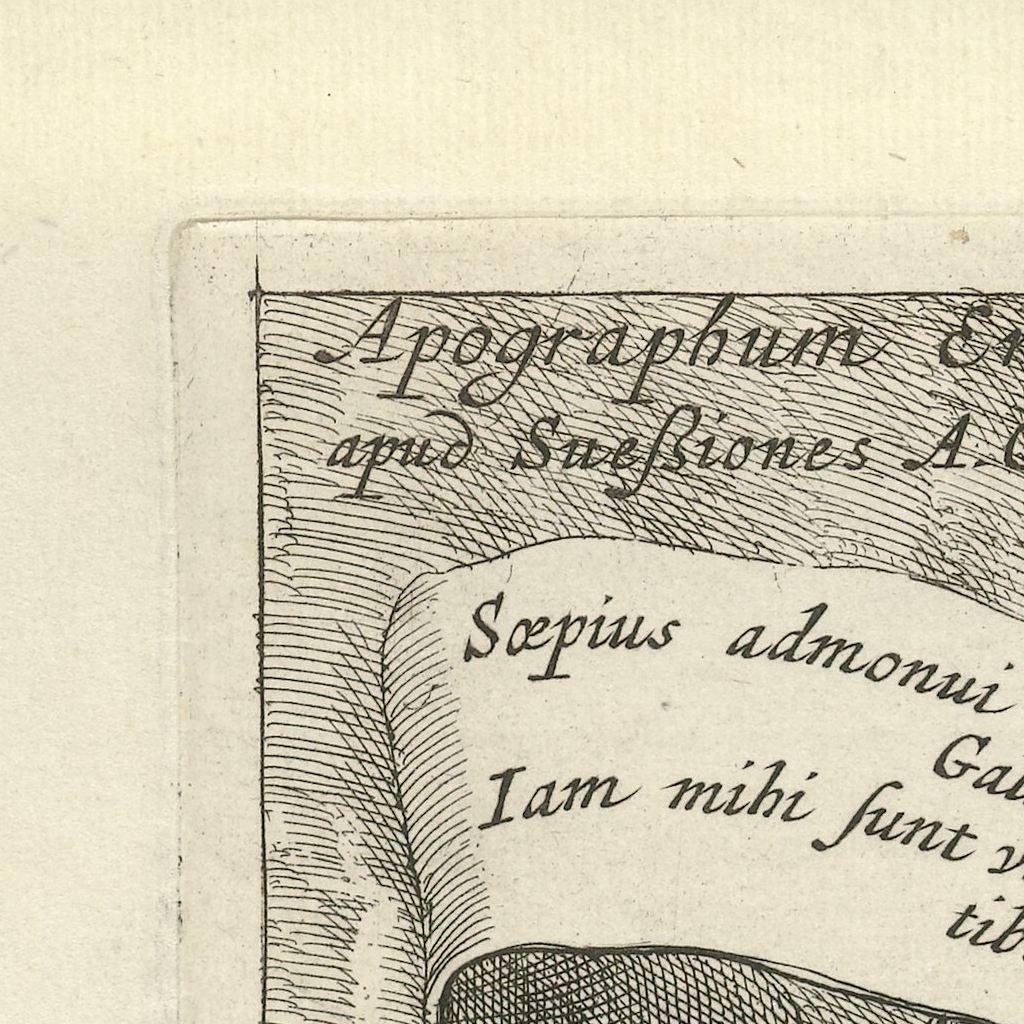 Apographum
apud Sueßiones A.
Sœpius admonui
Iam mihi ſunt